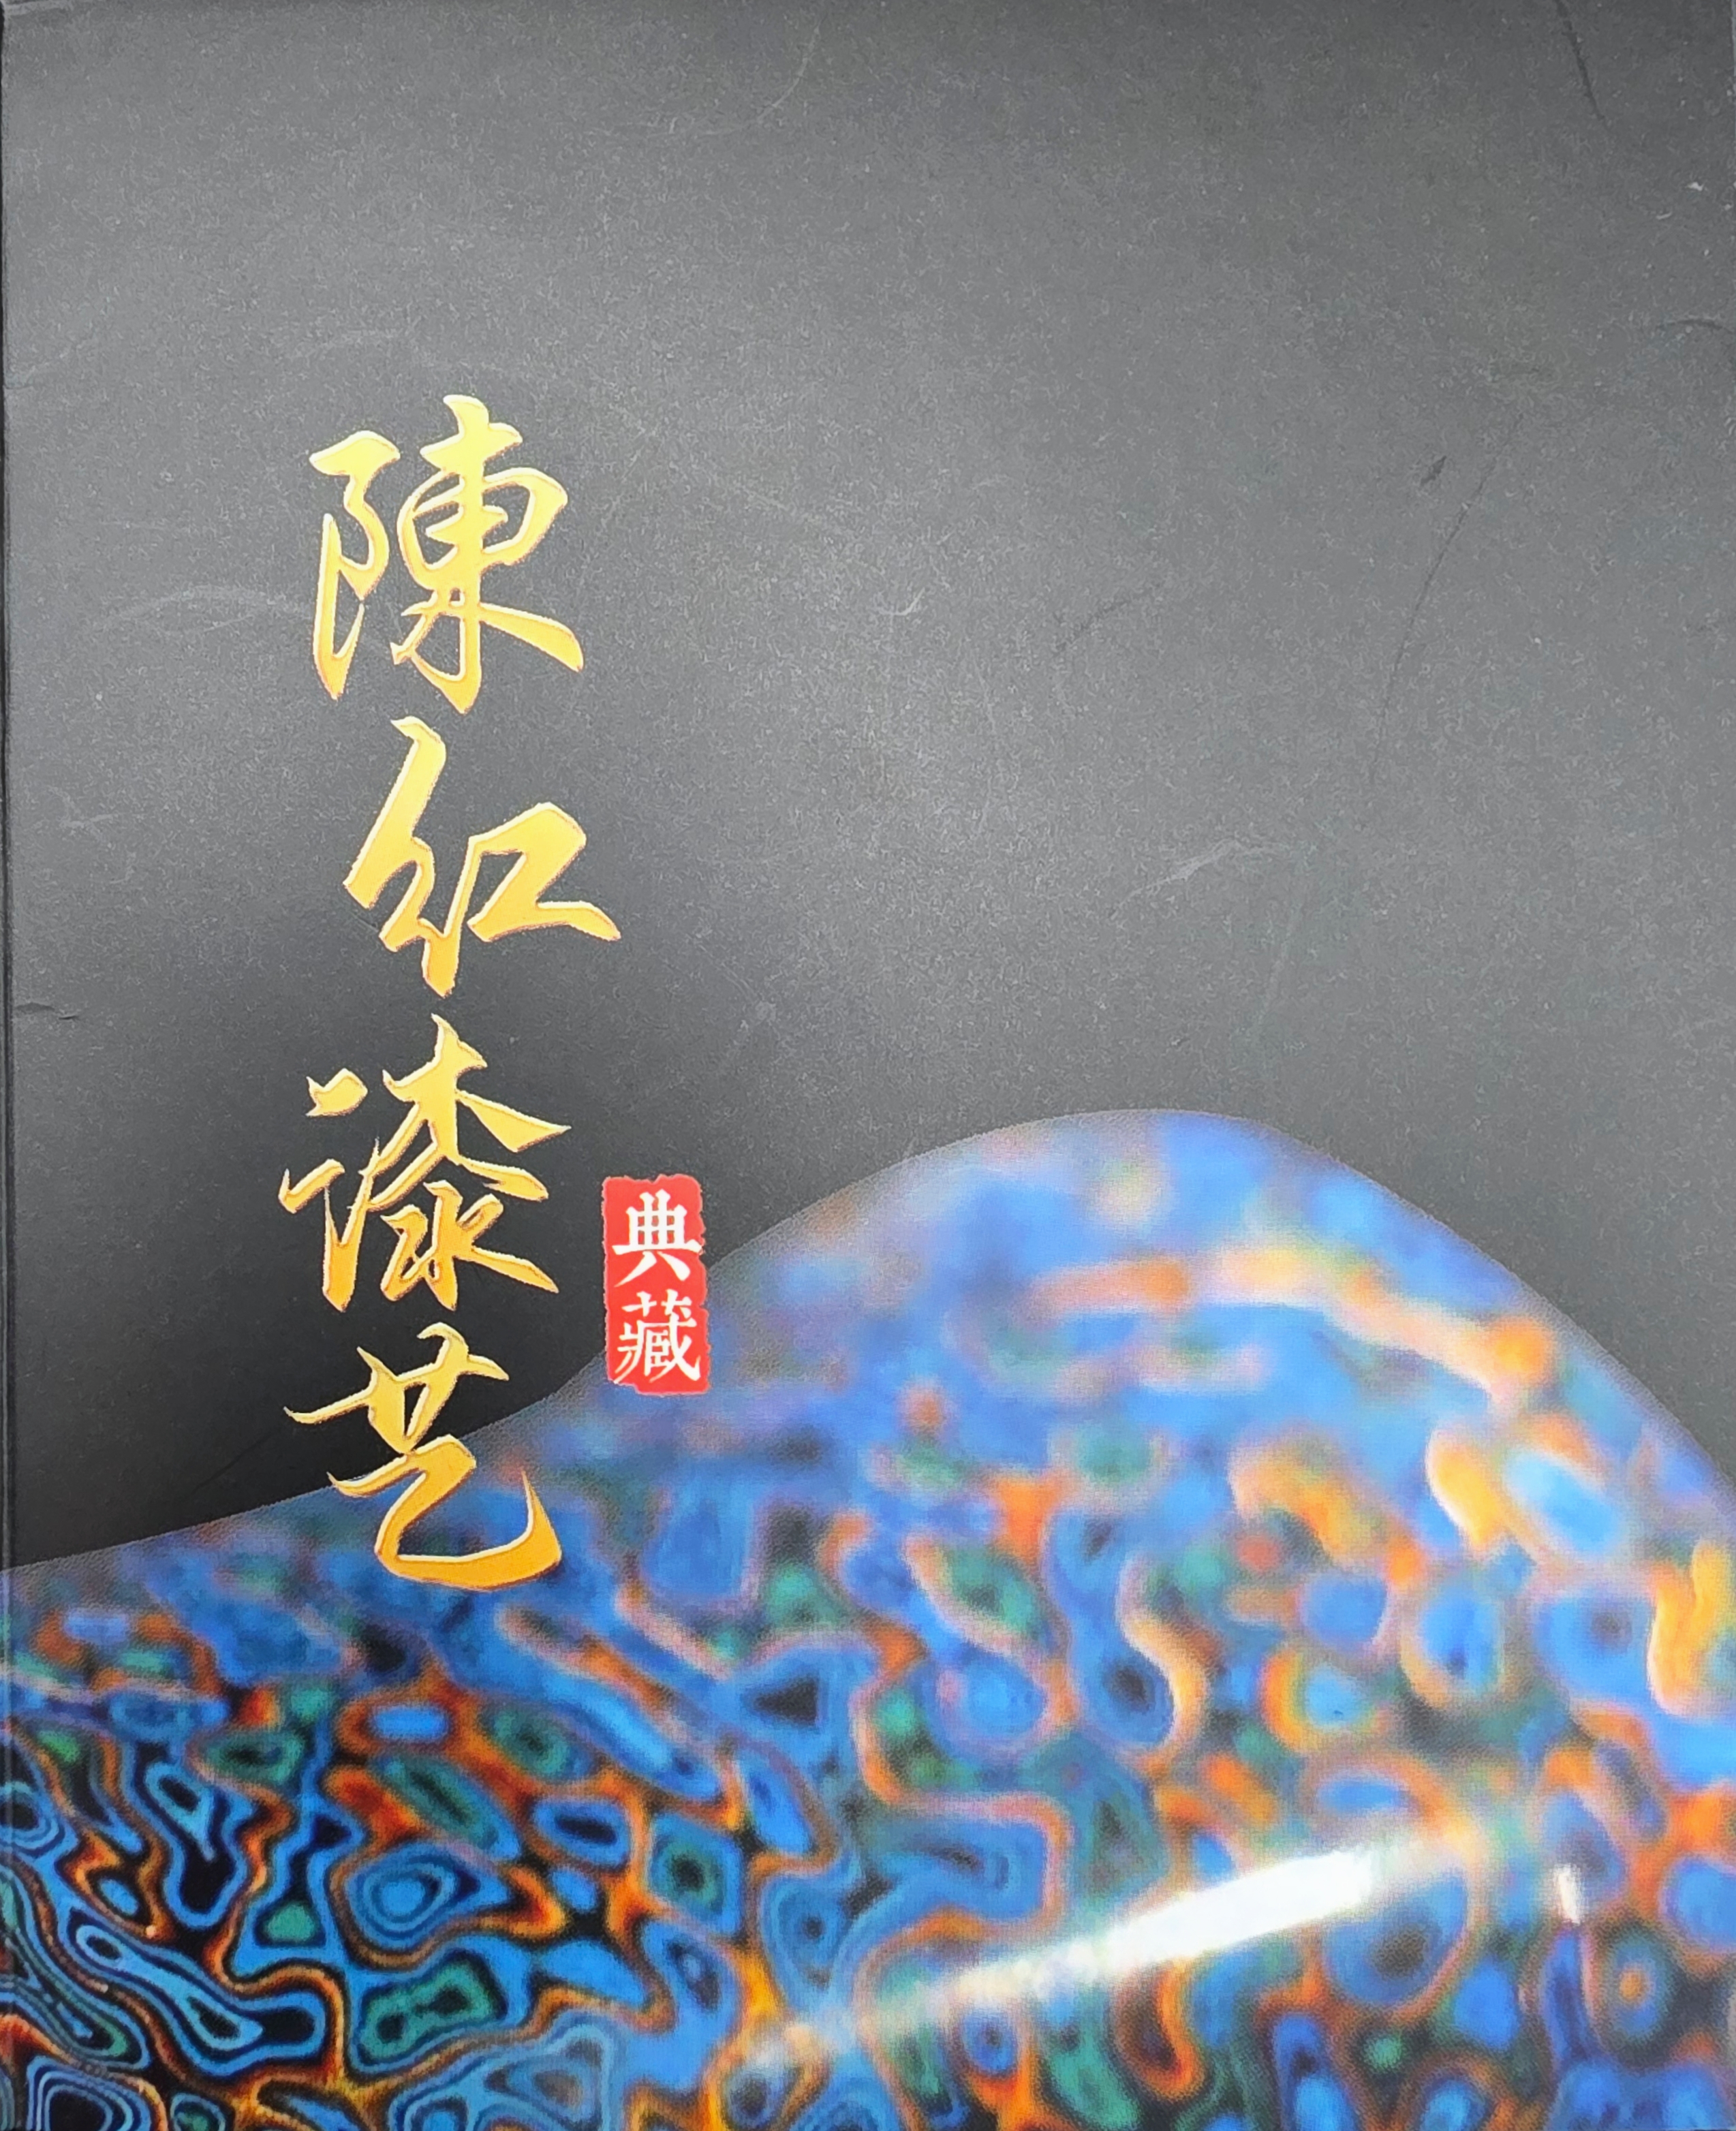 陳红漆艺
典藏